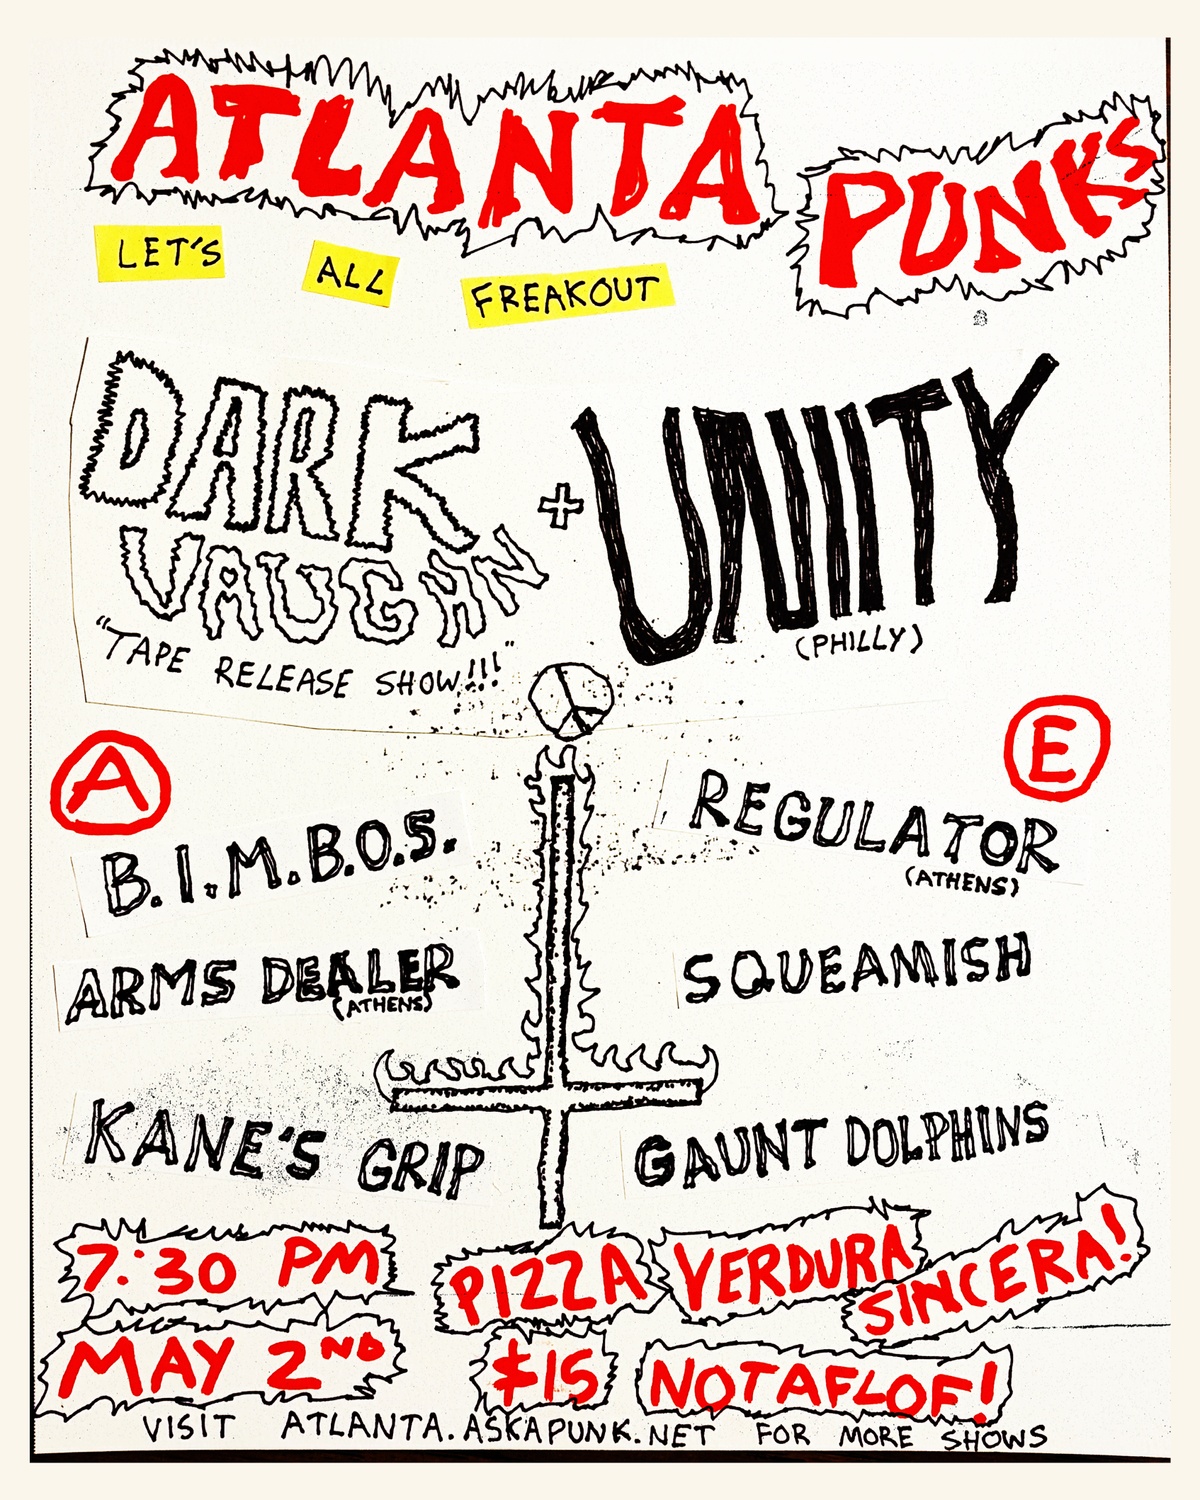 ATLANTA PUNKS
LET'S ALL FREAKOUT
DARK VAUGHN
+
UNITY
(PHILLY)
"TAPE RELEASE SHOW!!!"
A
E
B.I.M.B.O.S.
REGULATOR
(ATHENS)
ARMS DEALER
(ATHENS)
SQUEAMISH
KANE'S GRIP
GAUNT DOLPHINS
7:30 PM
MAY 2ND
PIZZA VERDURA SINCERA!
$15 NOTAFLOF!
VISIT ATLANTA.ASKAPUNK.NET FOR MORE SHOWS